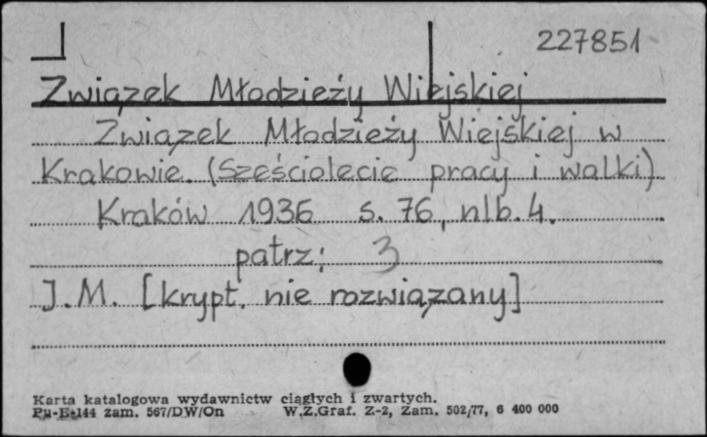 227851
Związek Młodzieży Wiejskiej
Związek Młodzieży Wiejskiej w
Krakowie. (Sześciolecie pracy i walki)
Kraków 1936 s. 76, nlb. 4.
patrz: 3
J.M. [krypt. nie rozwiązany]
Karta katalogowa wydawnictw ciągłych i zwartych.
Pu-B-144 zam. 567/DW/On W.Z.Graf. Z-2, Zam. 502/77, 6 400 000